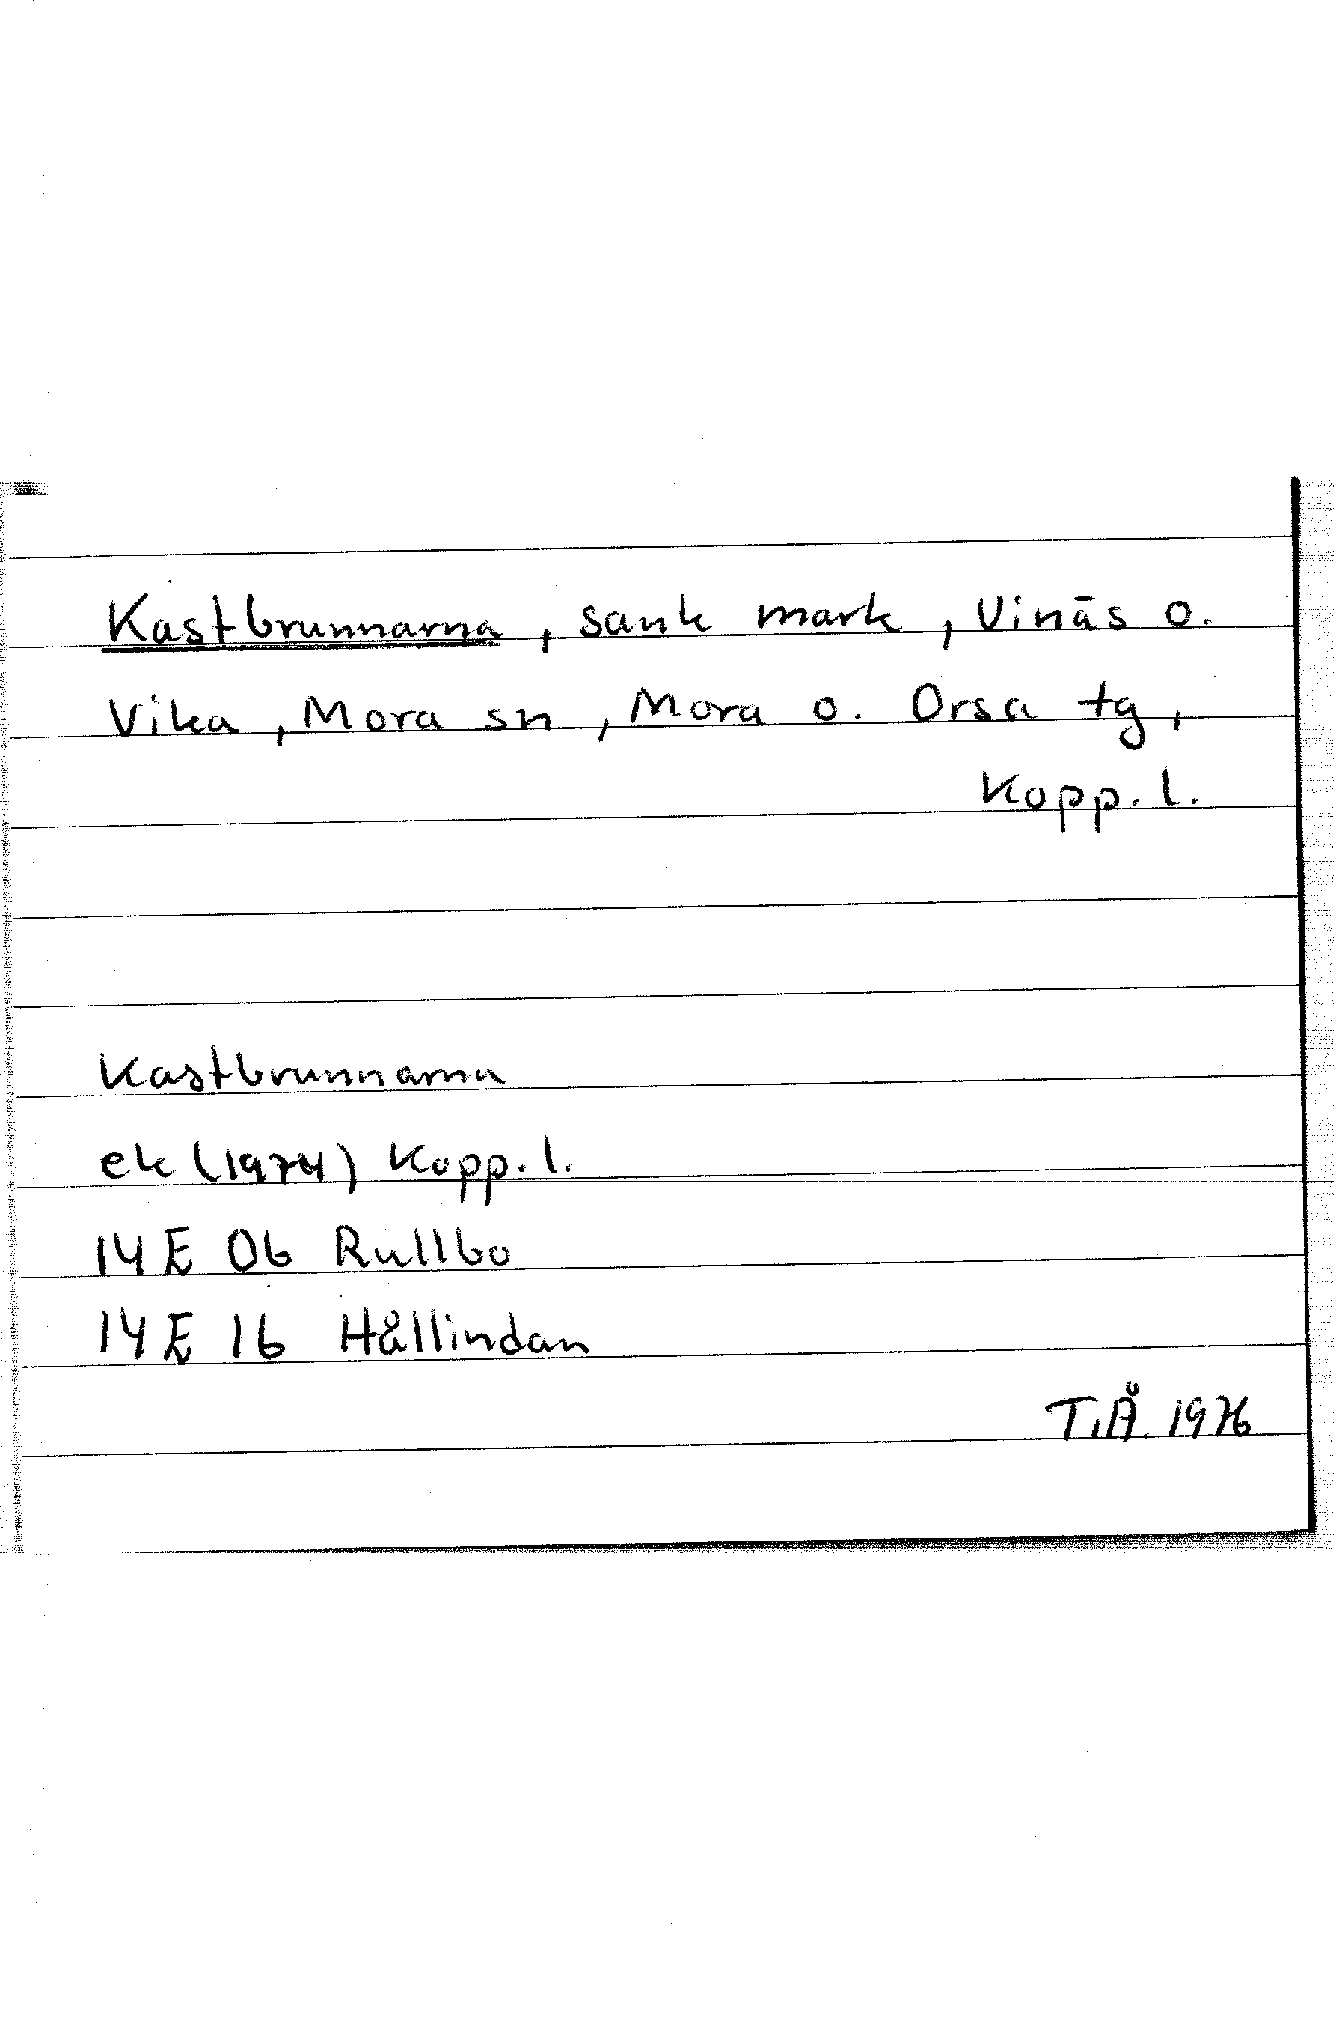 Kastbrunnarna, sank mark, Vinäs o.
Vika, Mora sn, Mora o. Orsa tg,
Kopp. l.
Kastbrunnarna
ek (1974) Kopp. l.
14E 06 Rullbo
14E 16 Hållindan
T.Å. 1976